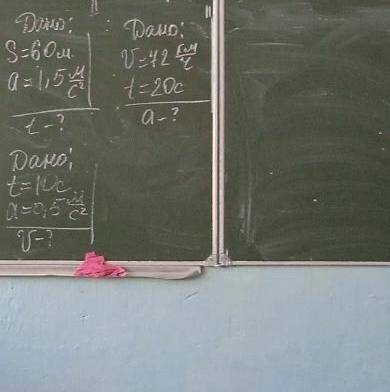 Дано:
S=60м
a=1,5 м/с²
t-?
Дано:
V=72 км/ч
t=20с
a-?
Дано:
t=10с
a=0,5 м/с²
V-?